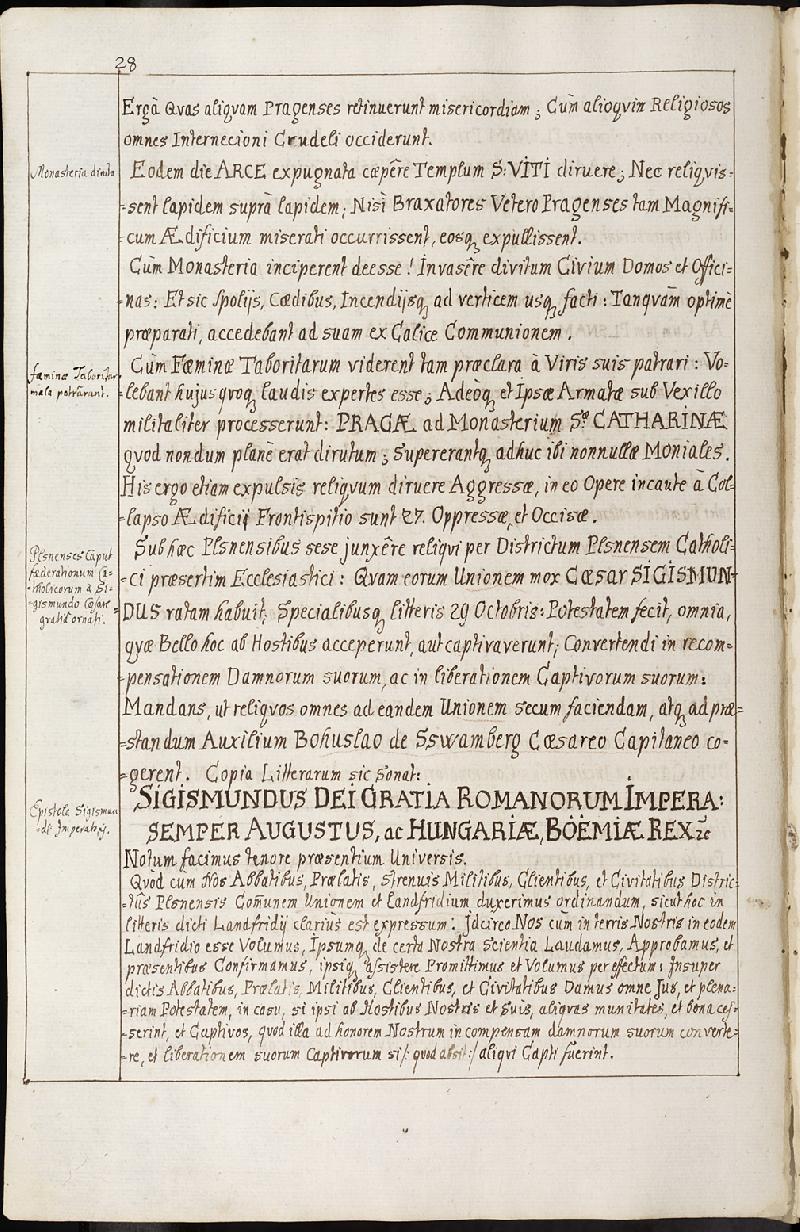 28
Ergà Qvas aliqvam Pragenses retinuerunt misericordiam; Cum alioqvin Religiosos
omnes Internecioni Crudeli occiderunt.
Monasteria diruta
Eodem die ARCE expugnata cœpêre Templum S: VITI diruere; Nec reliqvis=
=sent lapidem suprà lapidem; Nisi Braxatores Vetero Pragenses tam Magnifi=
=cum Ædificium miserati occurrissent, eosq; expulissent.
Cum Monasteria inciperent deesse! Invasêre divitum Civium Domos et Offici=
=nas: Et sic Spolijs, Cædibus, Incendijsq; ad verticem usq; facti: Tanqvam optimè
præparati, accedebant ad suam ex Calice Communionem.
fæminæ Taboritar:
mala patrarunt.
Cum Fæminæ Taboritarum viderent tam præclara à Viris suis patrari: Vo=
lebant hujus qvoq; laudis expertes esse; Adeòq; et Ipsæ Armatæ sub Vexillo
militaliter processerunt: PRAGÆ ad Monasterium Stæ CATHARINÆ
qvod nondum planè erat dirutum; supererantq; adhuc ibi nonnullæ Moniales.
His ergo etiam expulsis reliqvum diruere Aggressæ, in eo Opere incaute à Col=
=lapso Ædificij Frontispitio sunt 27. Oppressæ, et Occisæ.
Plsnenses Caput
fæderationum Ca=
=tholicorum à Si=
=gismundo Cæsare
gratijs ornati.
Sub hæc Plsnensibus sese junxêre reliqvi per Districtum Plsnensem Catholi=
=ci præsertim Ecclesiastici: Qvam eorum Unionem mox Cæsar SIGISMUN=
DUS ratam habuit, Specialibusq; litteris 29 Octobris: Potestatem fecit, omnia,
qvæ Bello hoc ab Hostibus acceperunt, aut captivaverunt; Convertendi in recom=
=pensationem Damnorum suorum, ac in liberationem Captivorum suorum:
Mandans, ut reliqvos omnes ad eandem Unionem secum faciendam, atq; ad præ=
=standum Auxilium Bohuslao de Sswamberg Cæsareo Capitaneo co=
=gerent. Copia Litterarum sic sonat:
Epistola Sigismun
=di Imperatoris.
SIGISMUNDUS DEI GRATIA ROMANORUM IMPERA:
SEMPER AUGUSTUS, ac HUNGARIÆ, BOËMIÆ REX &c
Notum facimus tenore præsentium Universis.
Qvòd cum Nos Abbatibus, Prælatis, Strenuis Militibus, Clientibus, et Civitatibus Distric=
=tûs Plsnensis Com̄unem Unionem et Landfridium duxerimus ordinandum, sicut hoc in
litteris dicti Landfridij clarius est expressum: Idcirco Nos cum in terris Nostris in eodem
Landfridio esse Volumus, Ipsumq; de certa Nostra scientia Laudamus, Approbamus, et
præsentibus Confirmamus, ipsiq; assistere Promittimus et Volumus per effectum; Insuper
dictis Abbatibus, Prælatis, Militibus, Clientibus, et Civitatibus Damus omne Jus, et plena=
=riam Potestatem, in casu, si ipsi ab Hostibus Nostris et suis, aliqvas munitates, et bona ces=
=serint, et Captivos, qvod illa ad honorem Nostrum in compensam damnorum suorum converte=
=re, et liberationem suorum Captivorum si /: qvod absit :/ aliqvi Capti fuerint.